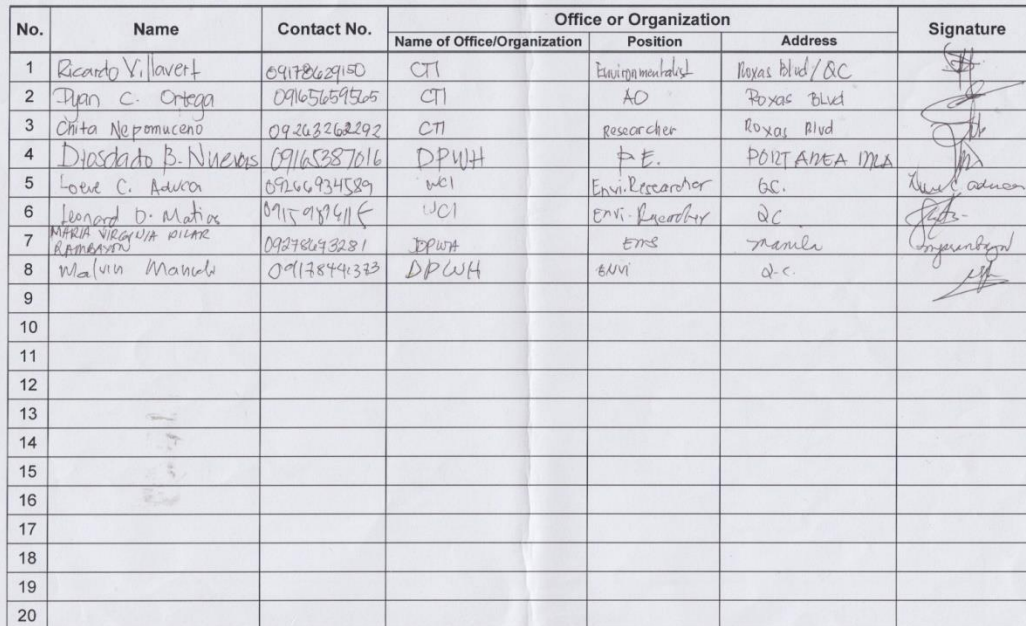 No. Name Contact No. Office or Organization Signature
Name of Office/Organization Position Address
1 Ricardo Villavert 09178629150 CTI Environmentalist Roxas Blvd/QC
2 Ryan C. Ortega 09165659565 CTI AO Roxas Blvd
3 Chita Nepomuceno 09263262292 CTI Researcher Roxas Blvd
4 Diosdado B. Nuevas 09165387016 DPWH P.E. PORT AREA MLA
5 C. Aduca 09266934589 WCI Envi. Researcher QC.
6 Leonard D. Matias WCI Envi. Researcher QC
7 MARIA VIRGINIA PILAR
RAMBAYON 09278693281 DPWH EMS Manila
8 Malvin 09178441373 DPWH ENVI Q.C.
9
10
11
12
13
14
15
16
17
18
19
20